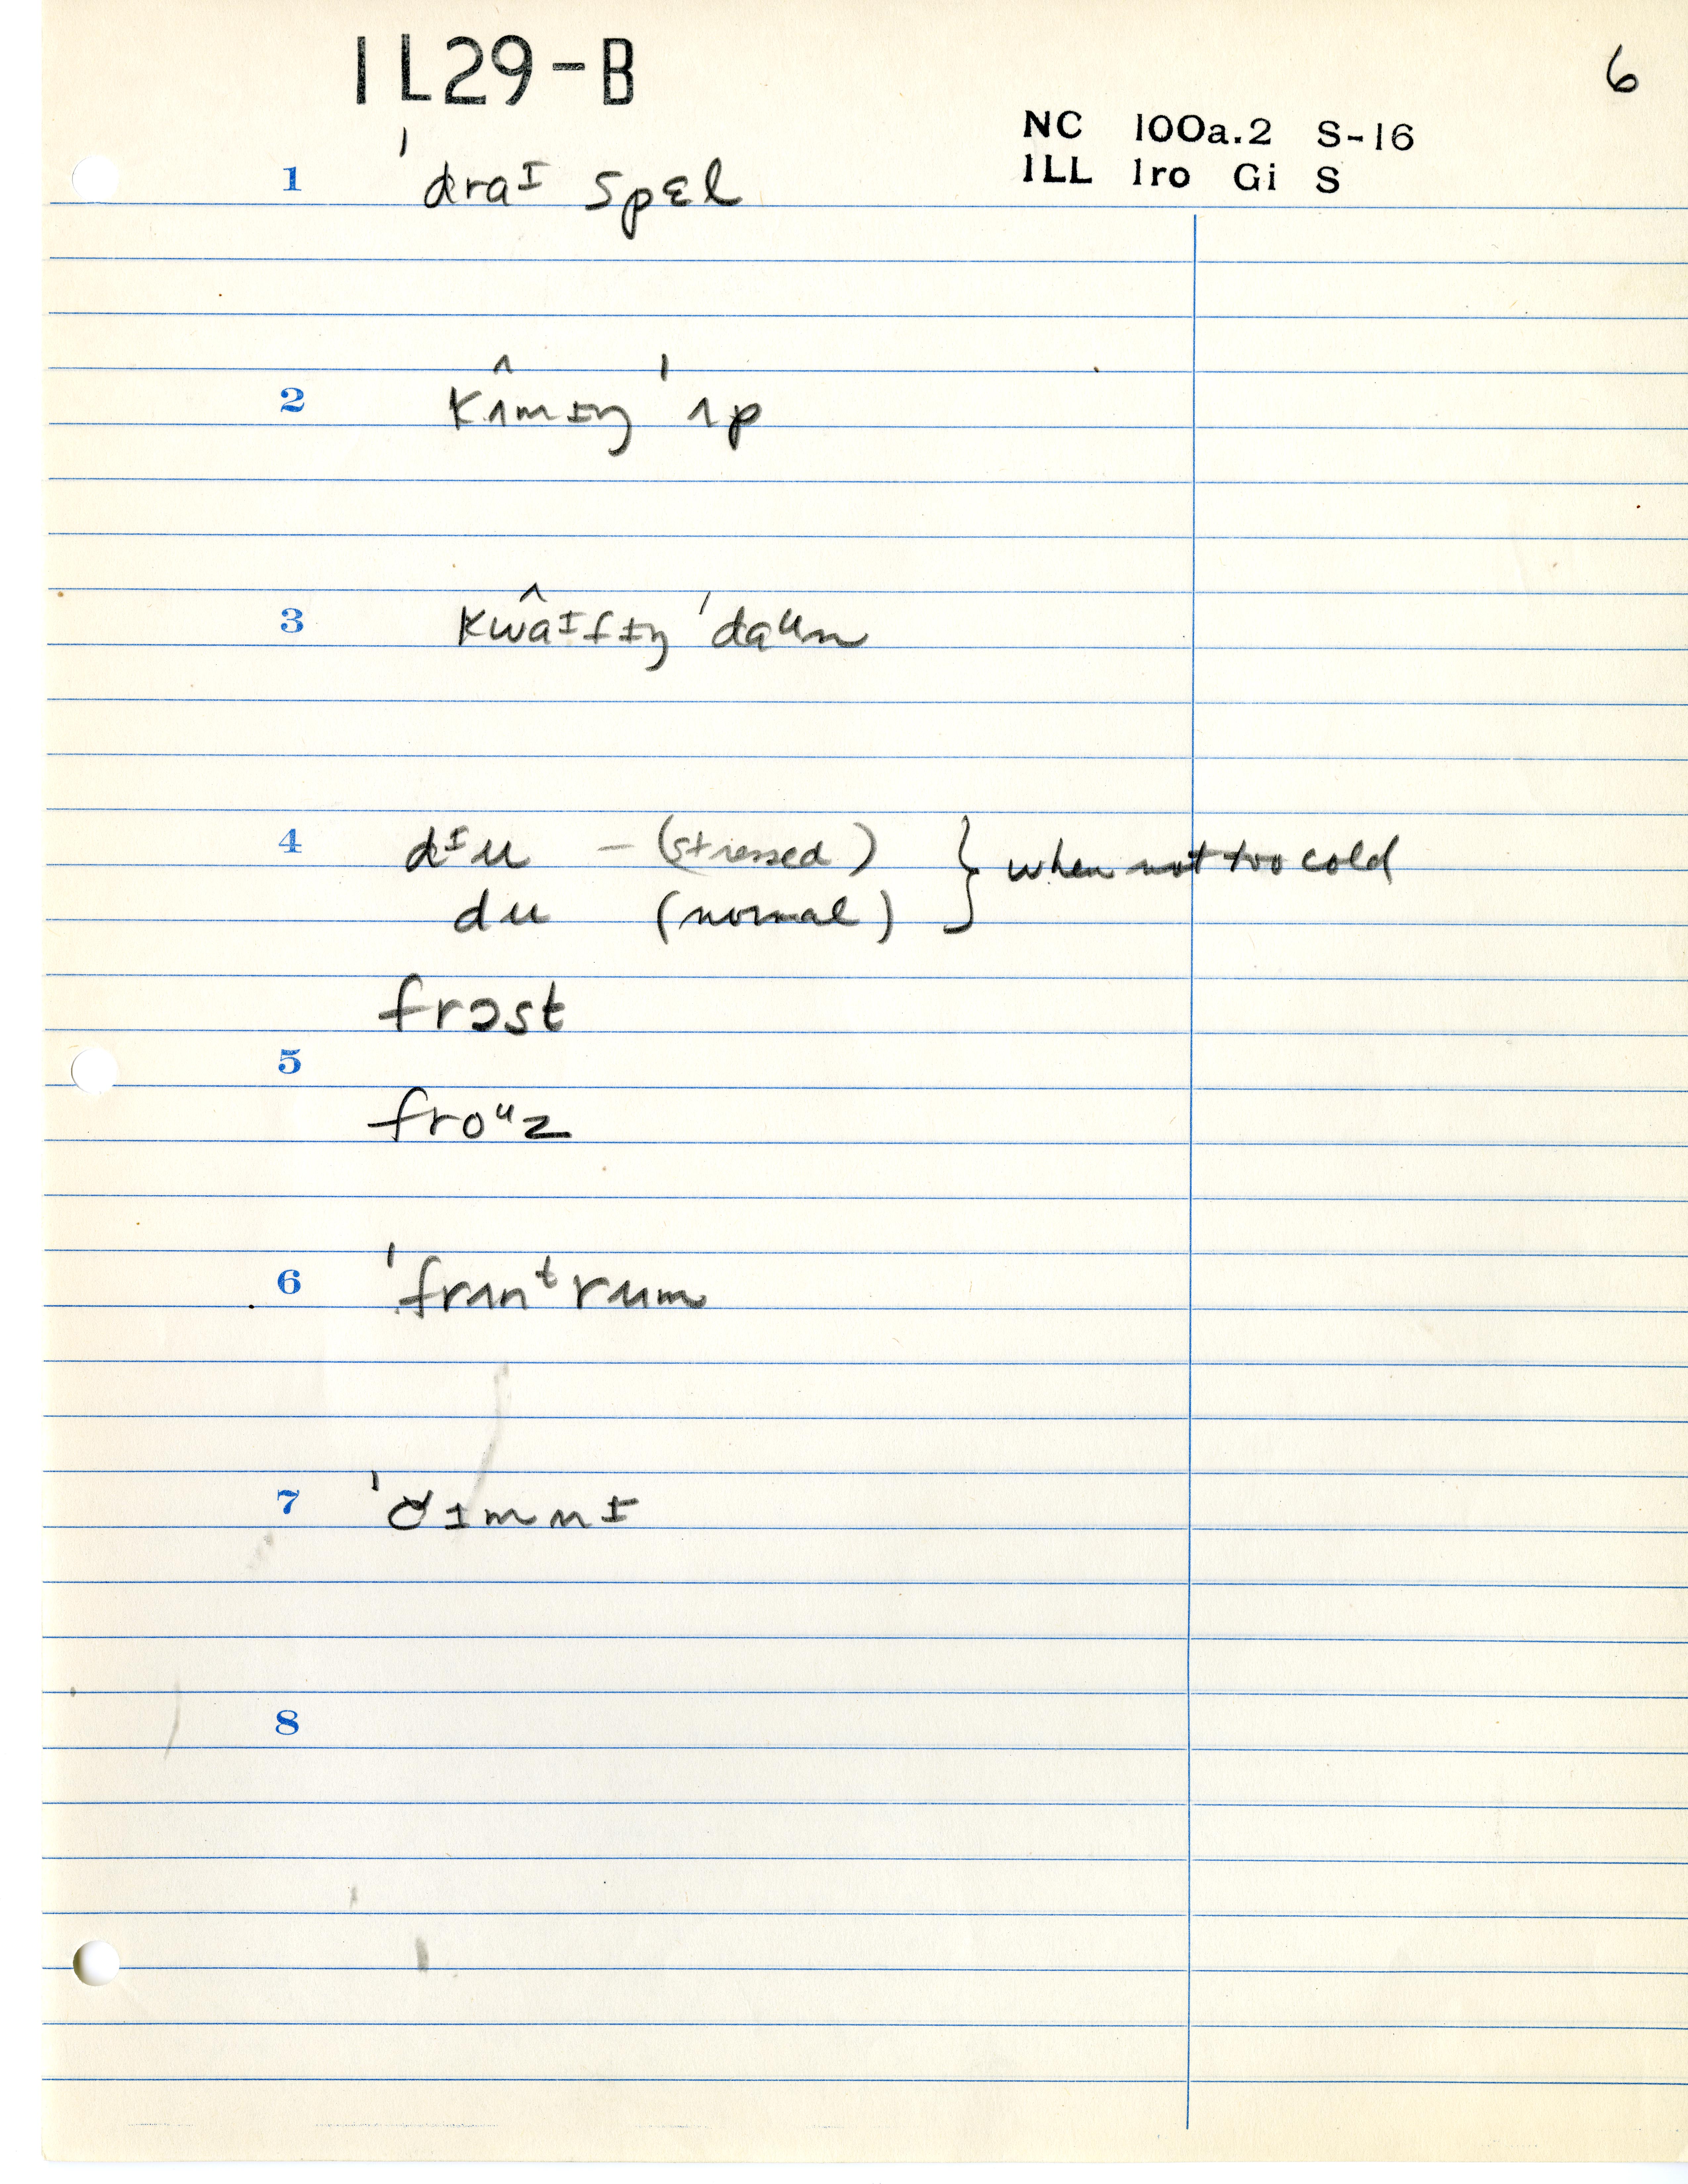 IL29-B
6
NC 100a.2 S-16
ILL Iro Gi S
1 ˈdraɪ spɛl
2 kʌ̂mɪŋ ˈʌp
3 kwâɪɪŋ ˈdaᵘn
4 dᶦu – (stressed) } when not too cold
du (normal)
frɔst
5
froᵘz
6 ˈfrʌnᵗrum
7 ˈtʃɪmnɪ
8